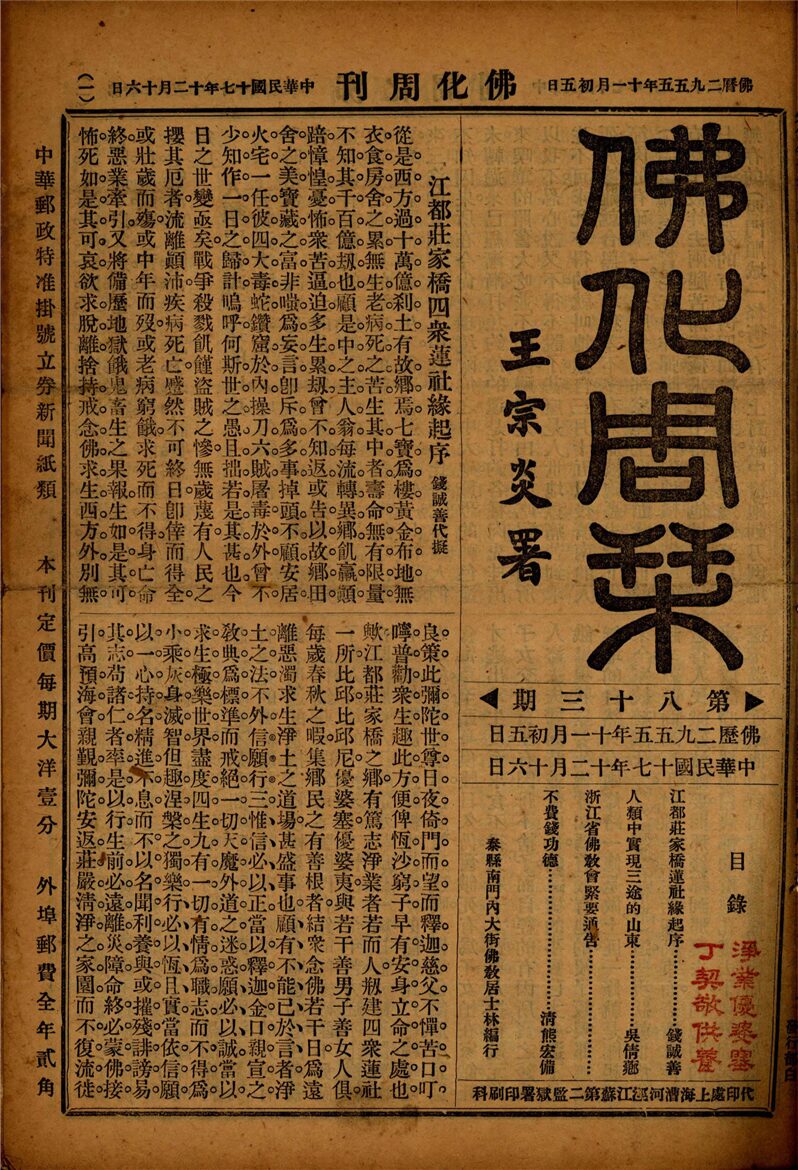 佛曆二九五五年十一月初五日
佛化周刊
中華民國十七年十二月十六日
(一)
佛化周栞
王宗炎署
第八十三期
佛歷二九五五年十一月初五日
中華民國十七年十二月十六日
目錄
江都莊家橋蓮社緣起序…………錢誠善
人類中實現三途的山東…………吳倩薌
浙江省佛敎會緊要通告…………
不費錢功德…………清熊宏備
泰縣南門內大街佛敎居士林編行
淨業優婆塞
丁契敬供養
代印處上海漕河涇江蘇第二監獄署印刷科
江都莊家橋四衆蓮社緣起序 錢誠善代擬
從是西方過十萬億刹土。有故鄉焉。七寶爲樓。黃金布地。無
衣食房舍之累。無生老病死之苦。生其中者。壽命無有限量。
不知其千百億刼也。顧是中之主人翁。每流轉異鄉。飢羸顛
踣。慞惶憂怖。衆苦逼迫。多生累刼。曾不知返。或告以故鄉田
舍之美。寶藏之富。非嗤爲妄言。卽斥爲多事。掉頭不顧。安居
火宅。一任彼四大毒蛇。鑽窟於內。操刀六賊。屠毒於外。曾不
少知作一日之歸計。嗚呼。何斯世之愚且拙。若是其甚也。今
日之世變亟矣。戰爭殺戮。飢饉盜賊之慘。無歲蔑有。人民之
攖其厄者。流離顚沛。疾病死亡。蹙然不可終日。卽倖而得全。
或壯歲而殤。或中年而歿。或老病窮餓。求死而不得。身亡命
終。惡業牽引。又將備歷地獄餓鬼畜生之果報。生如是其可
怖。死如是其可哀。欲求脫離。捨持戒念佛。求生西方外。別無
良策。此彌陀世尊。日夜倚門而望。而釋迦慈父。不憚苦口叮
嚀。普勸衆生趣此方便。俾恆沙窮子。早有安身立命之處也
歟。江都莊家橋之鄉。有篤志淨業者若而人。刱建四衆蓮社
一所。比邱比邱尼優婆塞優婆夷。與若干善男子善女人俱。
每歲春秋之暇。集鄉民之有善根者。結衆念佛若干日。爲遠
離惡濁求生淨土之道場。甚盛事也。顧有不能已於言者。淨
土之法。不外信願行三。惟信必以正。當以釋迦金口親宣之
敎典爲標準。而戒絕一切天魔外道之迷惑。願必以誠。當以
求生極樂世界。盡度四生九有一切有情爲職志。而不得爲
小乘灰身滅智。但趣涅槃之獨樂。行必以恆且實。當依信願。
以一心持名。精進不息。而不以名聞利養與或摧殘誹謗易
其志。苟諸仁者率是以行。生前必遠離災障。命終必蒙佛接
引。高預海會。親覲彌陀。安返莊嚴清淨之家園。而不復流徙。
中華郵政特准掛號立券新聞紙類　本刊定價每期大洋壹分　外埠郵費全年貳角